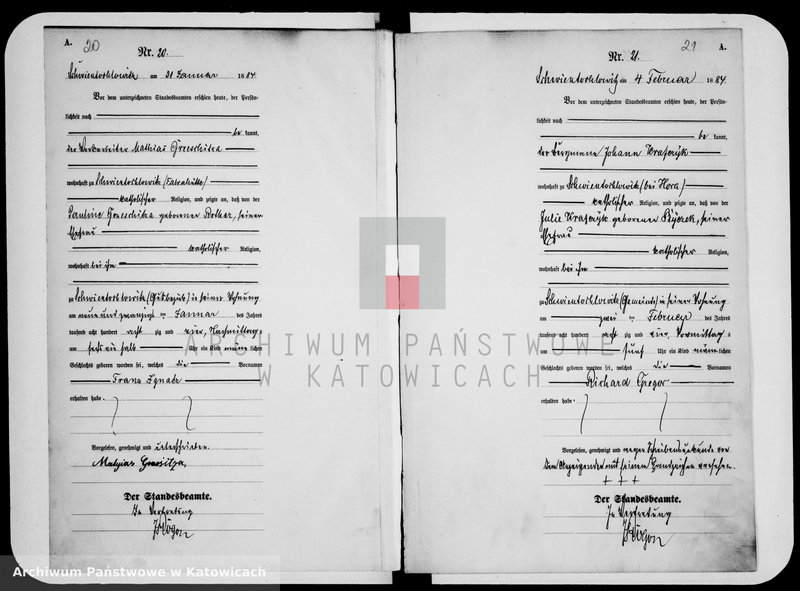 A. 20
Nr. 20.
Schwientochlowitz am 31 Januar 1884
Vor dem unterzeichneten Standesbeamten erschien heute, der Persön-
lichkeit nach
be kannt,
der Mathias
wohnhaft zu Schwientochlowitz
katholischer Religion, und zeigte an, daß von der
Pauline geborener seiner
Ehefrau
katholischer Religion,
wohnhaft bei ihm
zu Schwientochlowitz (Gutsbezirk) in seiner Wohnung
am neun und zwanzigst en Januar des Jahres
tausend acht hundert acht zig und vier, Nachmittag s
um sechs ein halb Uhr ein Kind männ lichen
Geschlechts geboren worden sei, welches die Vornamen
Franz Ignatz
erhalten habe.
Vorgelesen, genehmigt und unterschrieben.
Der Standesbeamte.
In Vertretung
21 A.
Nr. 21.
Schwientochlowitz am 4 Februar 1884.
Vor dem unterzeichneten Standesbeamten erschien heute, der Persön-
lichkeit nach
be kannt,
der Bergmann Johann
wohnhaft zu Schwientochlowitz (bei
katholischer Religion, und zeigte an, daß von der
Julie geborener seiner
Ehefrau
katholischer Religion,
wohnhaft bei ihm
zu Schwientochlowitz (Gemeinde) in seiner Wohnung
am zwei ten Februar des Jahres
tausend acht hundert acht zig und vier, Vormittag s
um fünf Uhr ein Kind männ lichen
Geschlechts geboren worden sei, welches die Vornamen
Richard Gregor
erhalten habe.
Vorgelesen, genehmigt und wegen Schreibensunkunde von
dem Anzeigenden mit seinem Handzeichen versehen.
+ + +
Der Standesbeamte.
In Vertretung
ARCHIWUM PAŃSTWOWE
W KATOWICACH
Archiwum Państwowe w Katowicach